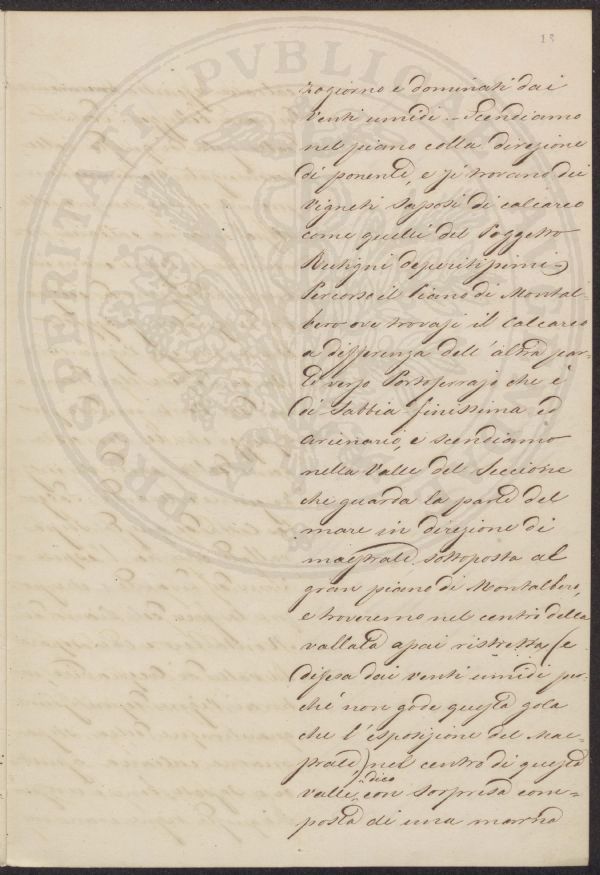 13
zogiorno e dominati dai
Venti umidi. – Scendiamo
nel piano colla direzione
di ponente, e si trovano dei
Vigneti saposi di calcareo
come quelli del Poggetto
Rutigni deperitissimi –
Percorso il Piano di Montal-
bero ove trovasi il Calcareo
a differenza dell'altra par-
te verso Portoferrajo che è
di Sabbia finissima ed
arienario, e scendiamo
nella Valle del Seccione
che guarda la parte del
mare in direzione di
maestrale sottoposta al
gran piano di Montalbero,
e troveremo nel centro della
vallata assai ristretta (e
difesa dai venti umidi per-
chè non gode questa gola
che l'esposizione del Mae-
strale) nel centro di questa
valle, dico, con sorpresa com-
posta di una marna
PROSPERITATI PVBLICAE